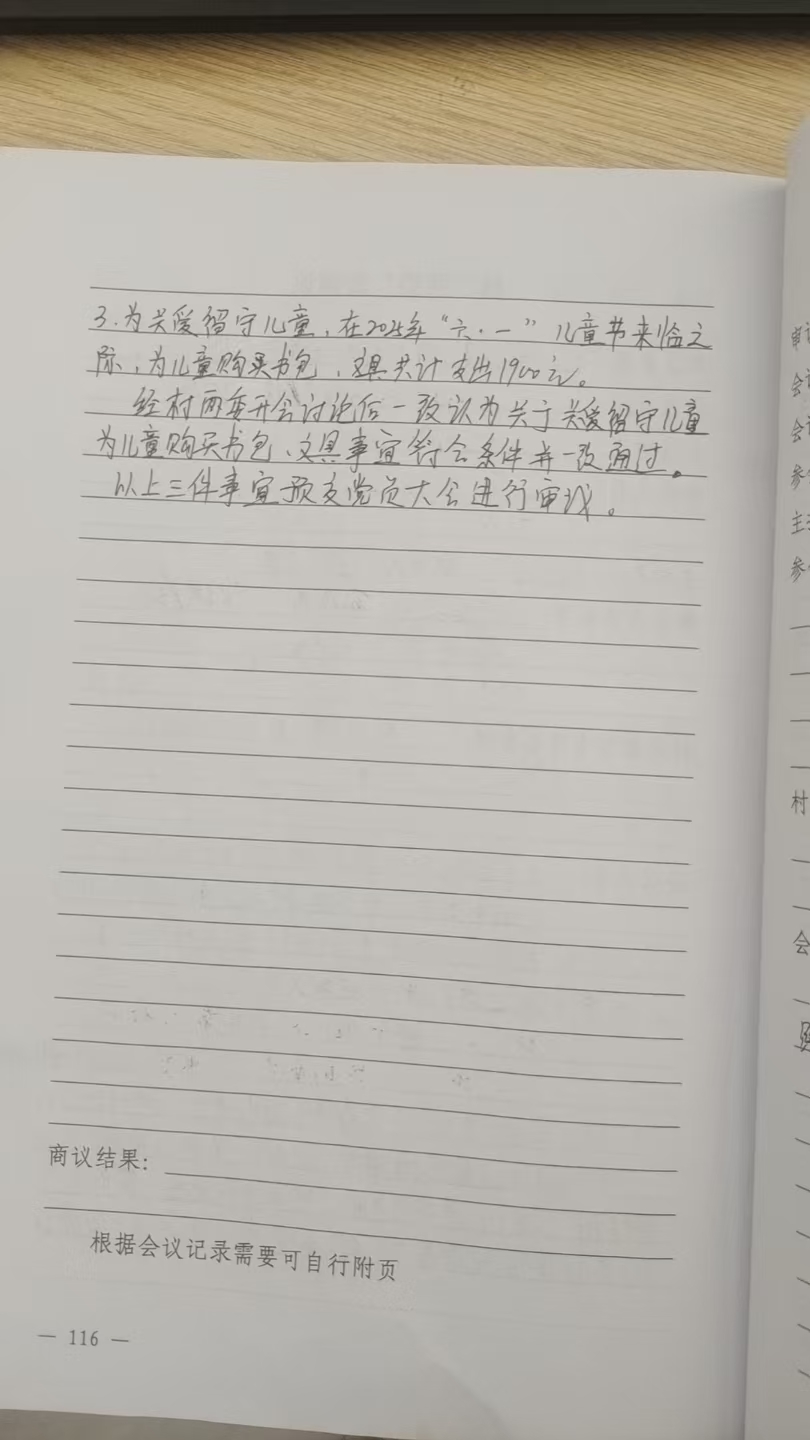 3.为关爱留守儿童,在2024年“六·一”儿童节来临之
际,为儿童购买书包、文具共计支出1900元。
经村两委开会讨论后一致认为关于关爱留守儿童
为儿童购买书包、文具事宜符合条件并一致通过。
以上三件事宜预交党员大会进行审议。
商议结果:
根据会议记录需要可自行附页
— 116 —
申
会
会
参
主
参
村
会